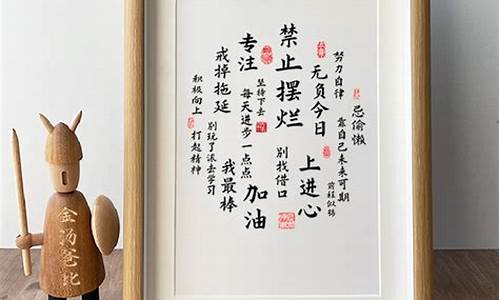 忌偷懒
努力自律
靠自己未来可期
前程似锦
无负今日
上进心
禁止摆烂
别找借口
专注
坚持下去
每天进步一点点
加油
戒掉拖延
我最棒
别玩了滚去学习
积极向上
打起精神
金汤爸比